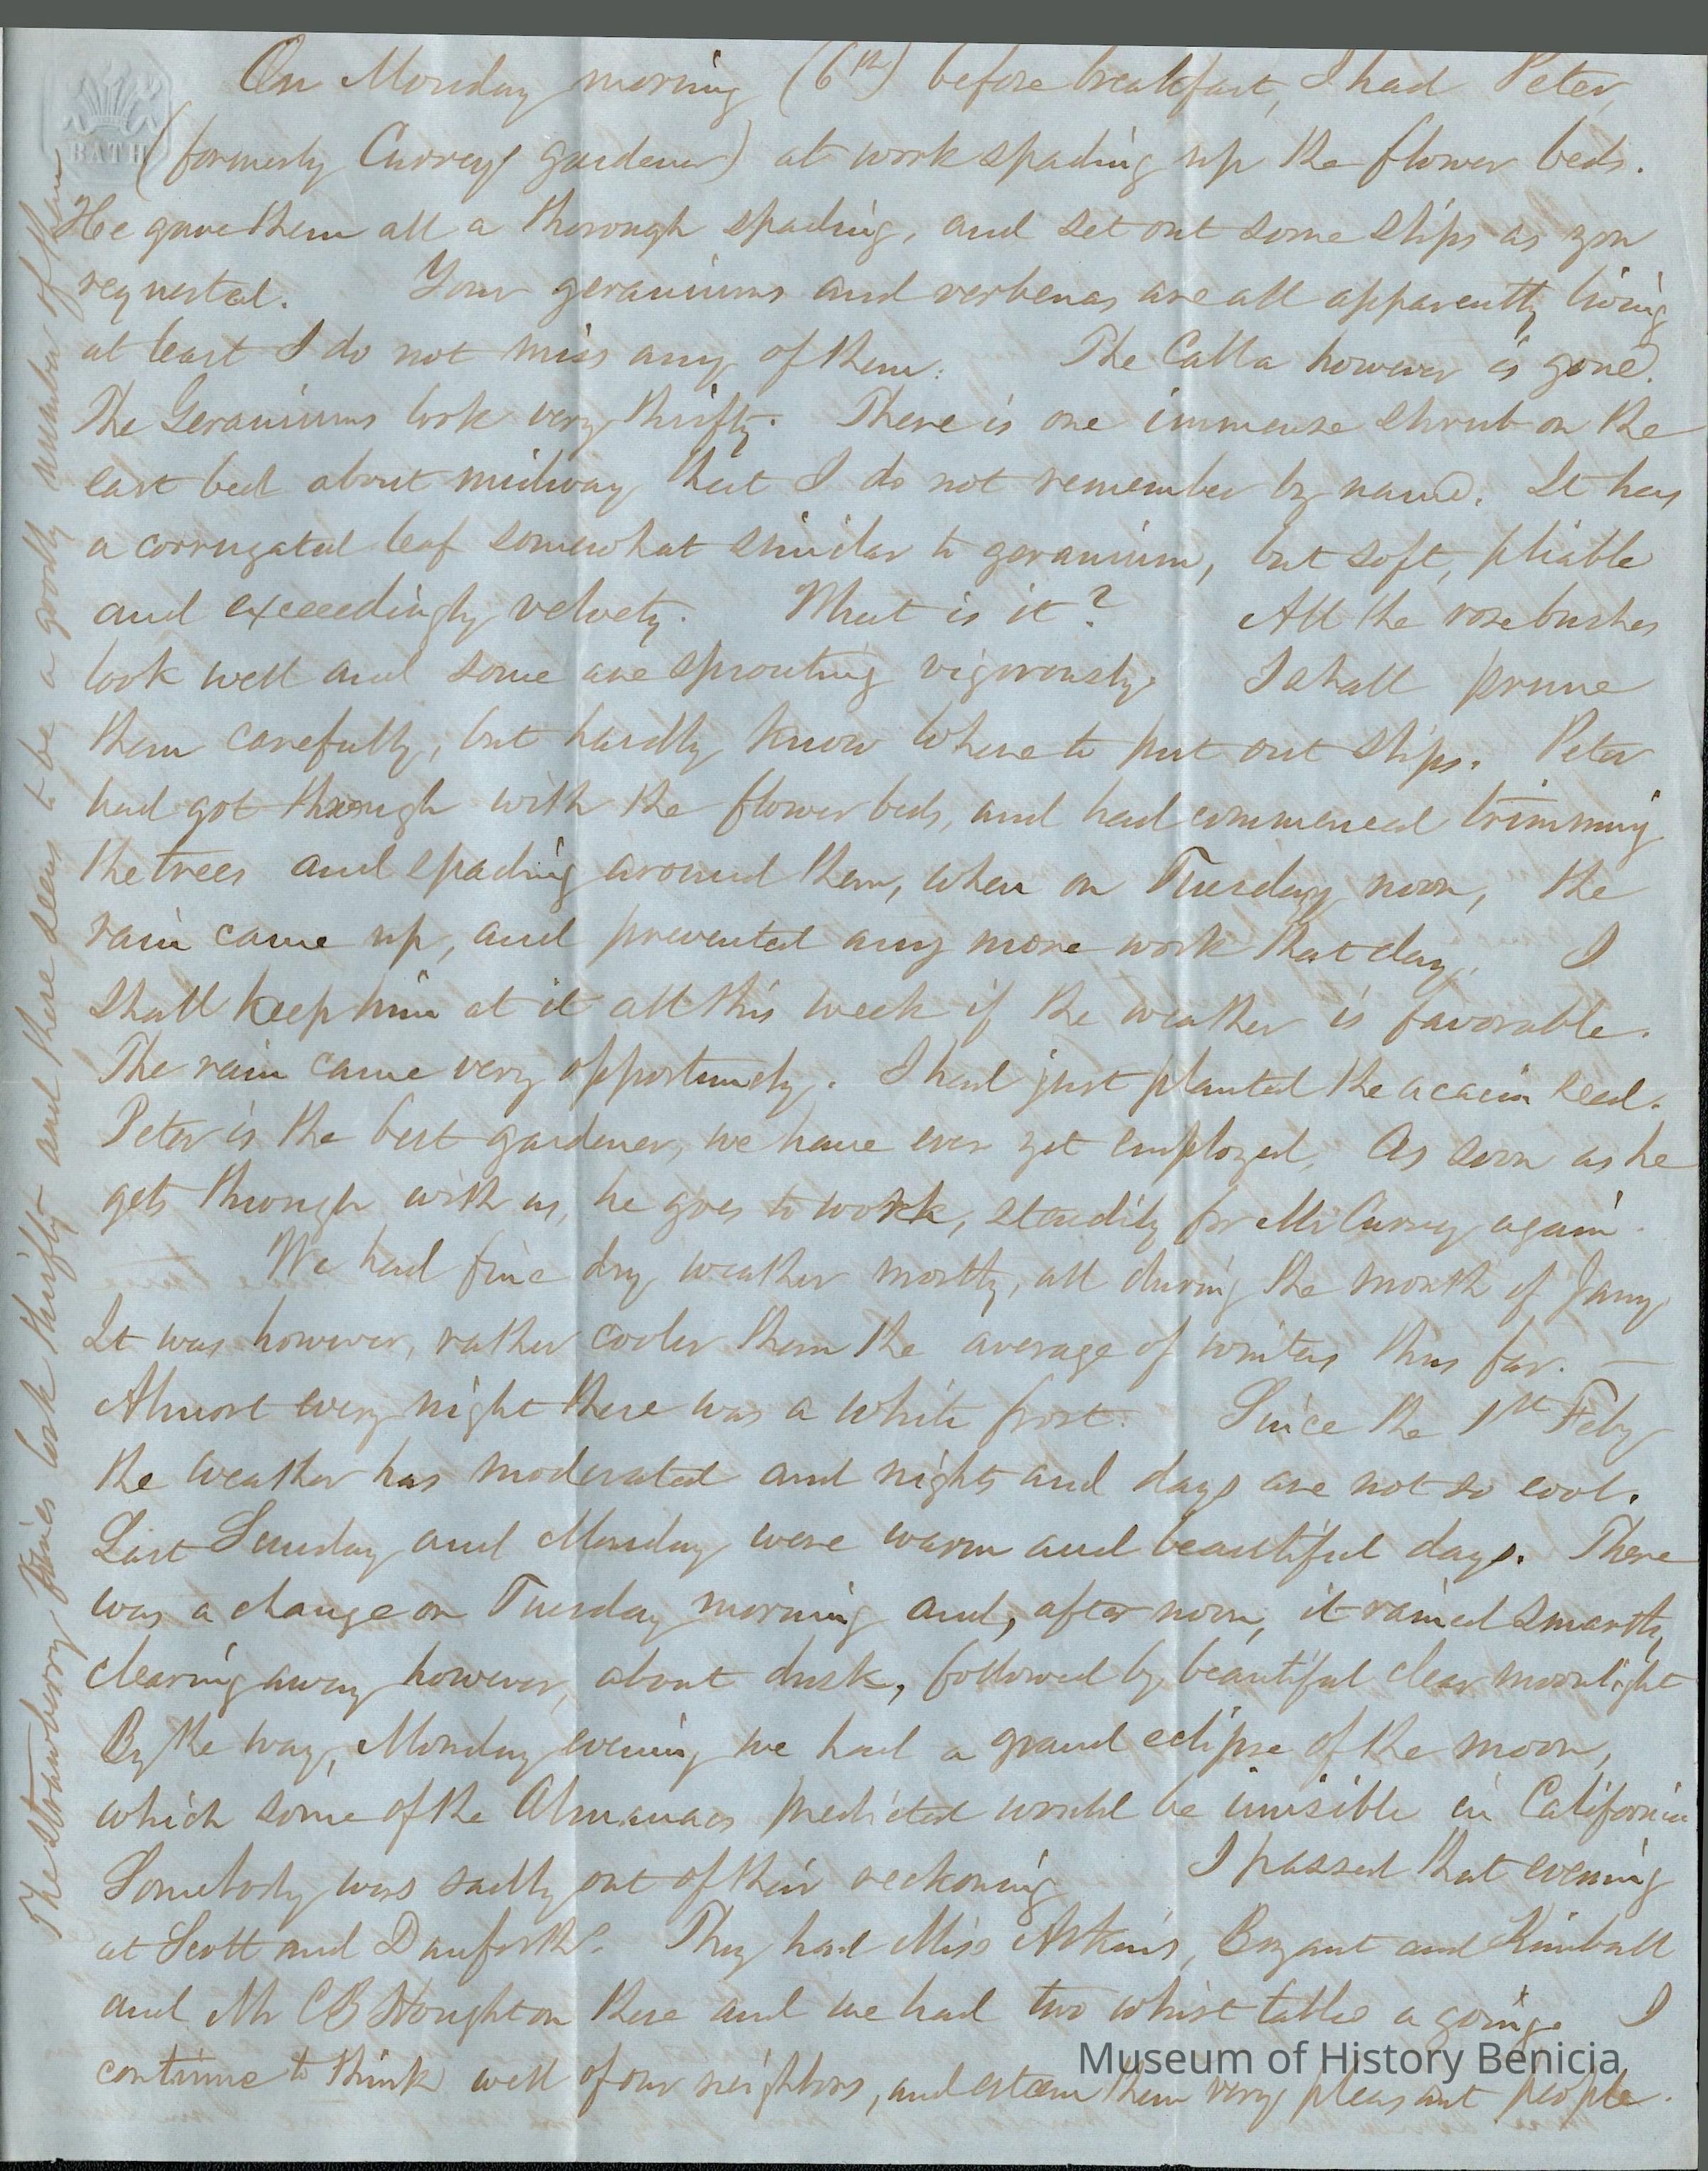 BATH
On Monday morning (6th) before breakfast, I had Peter,
(formerly Curreys gardener) at work spading up the flower beds.
He gave them all a thorough spading, and set out some slips as you
requested. Your geraniums and verbenas are all apparently living
at least I do not miss any of them. The Calla however is gone.
The Geraniums look very thrifty. There is one immense shrub on the
east bed about midway that I do not remember by name. It has
a corrugated leaf somewhat similar to geranium, but soft, pliable
and exceedingly velvety. What is it? All the rose bushes
look well and some are sprouting vigorously. I shall prune
them carefully, but hardly know where to put out slips. Peter
had got through with the flower beds, and had commenced trimming
the trees and spading around them, when on Tuesday noon, the
rain came up, and prevented any more work that day. I
shall keep him at it all this week if the weather is favorable.
The rain came very opportunely. I had just planted the acacia seed.
Peter is the best gardener, we have ever yet employed. As soon as he
gets through with us, he goes to work, steadily for Mr Currey again.
We had fine dry weather mostly, all during the month of Jany
It was however, rather cooler than the average of winters thus far. —
Almost every night there was a white frost. Since the 1st Feby
the weather has moderated and nights and days are not so cool.
Last Sunday and Monday were warm and beautiful days. There
was a change on Tuesday morning and, after noon, it rained smartly,
clearing away however, about dusk, followed by beautiful clear moonlight
By the way, Monday evening we had a grand eclipse of the moon,
which some of the Almanacs predicted would be invisible in California
Somebody was sadly out of their reckoning I passed that evening
at Scott and Danforths. They had Miss Atkins, Bryant and Kimball
and Mr CB Houghton there and we had two whist tables a going. I
continue to think well of our neighbors, and esteem them very pleasant people.
The Strawberry Vines look thrifty and there seems to be a goodly number of them
Museum of History Benicia